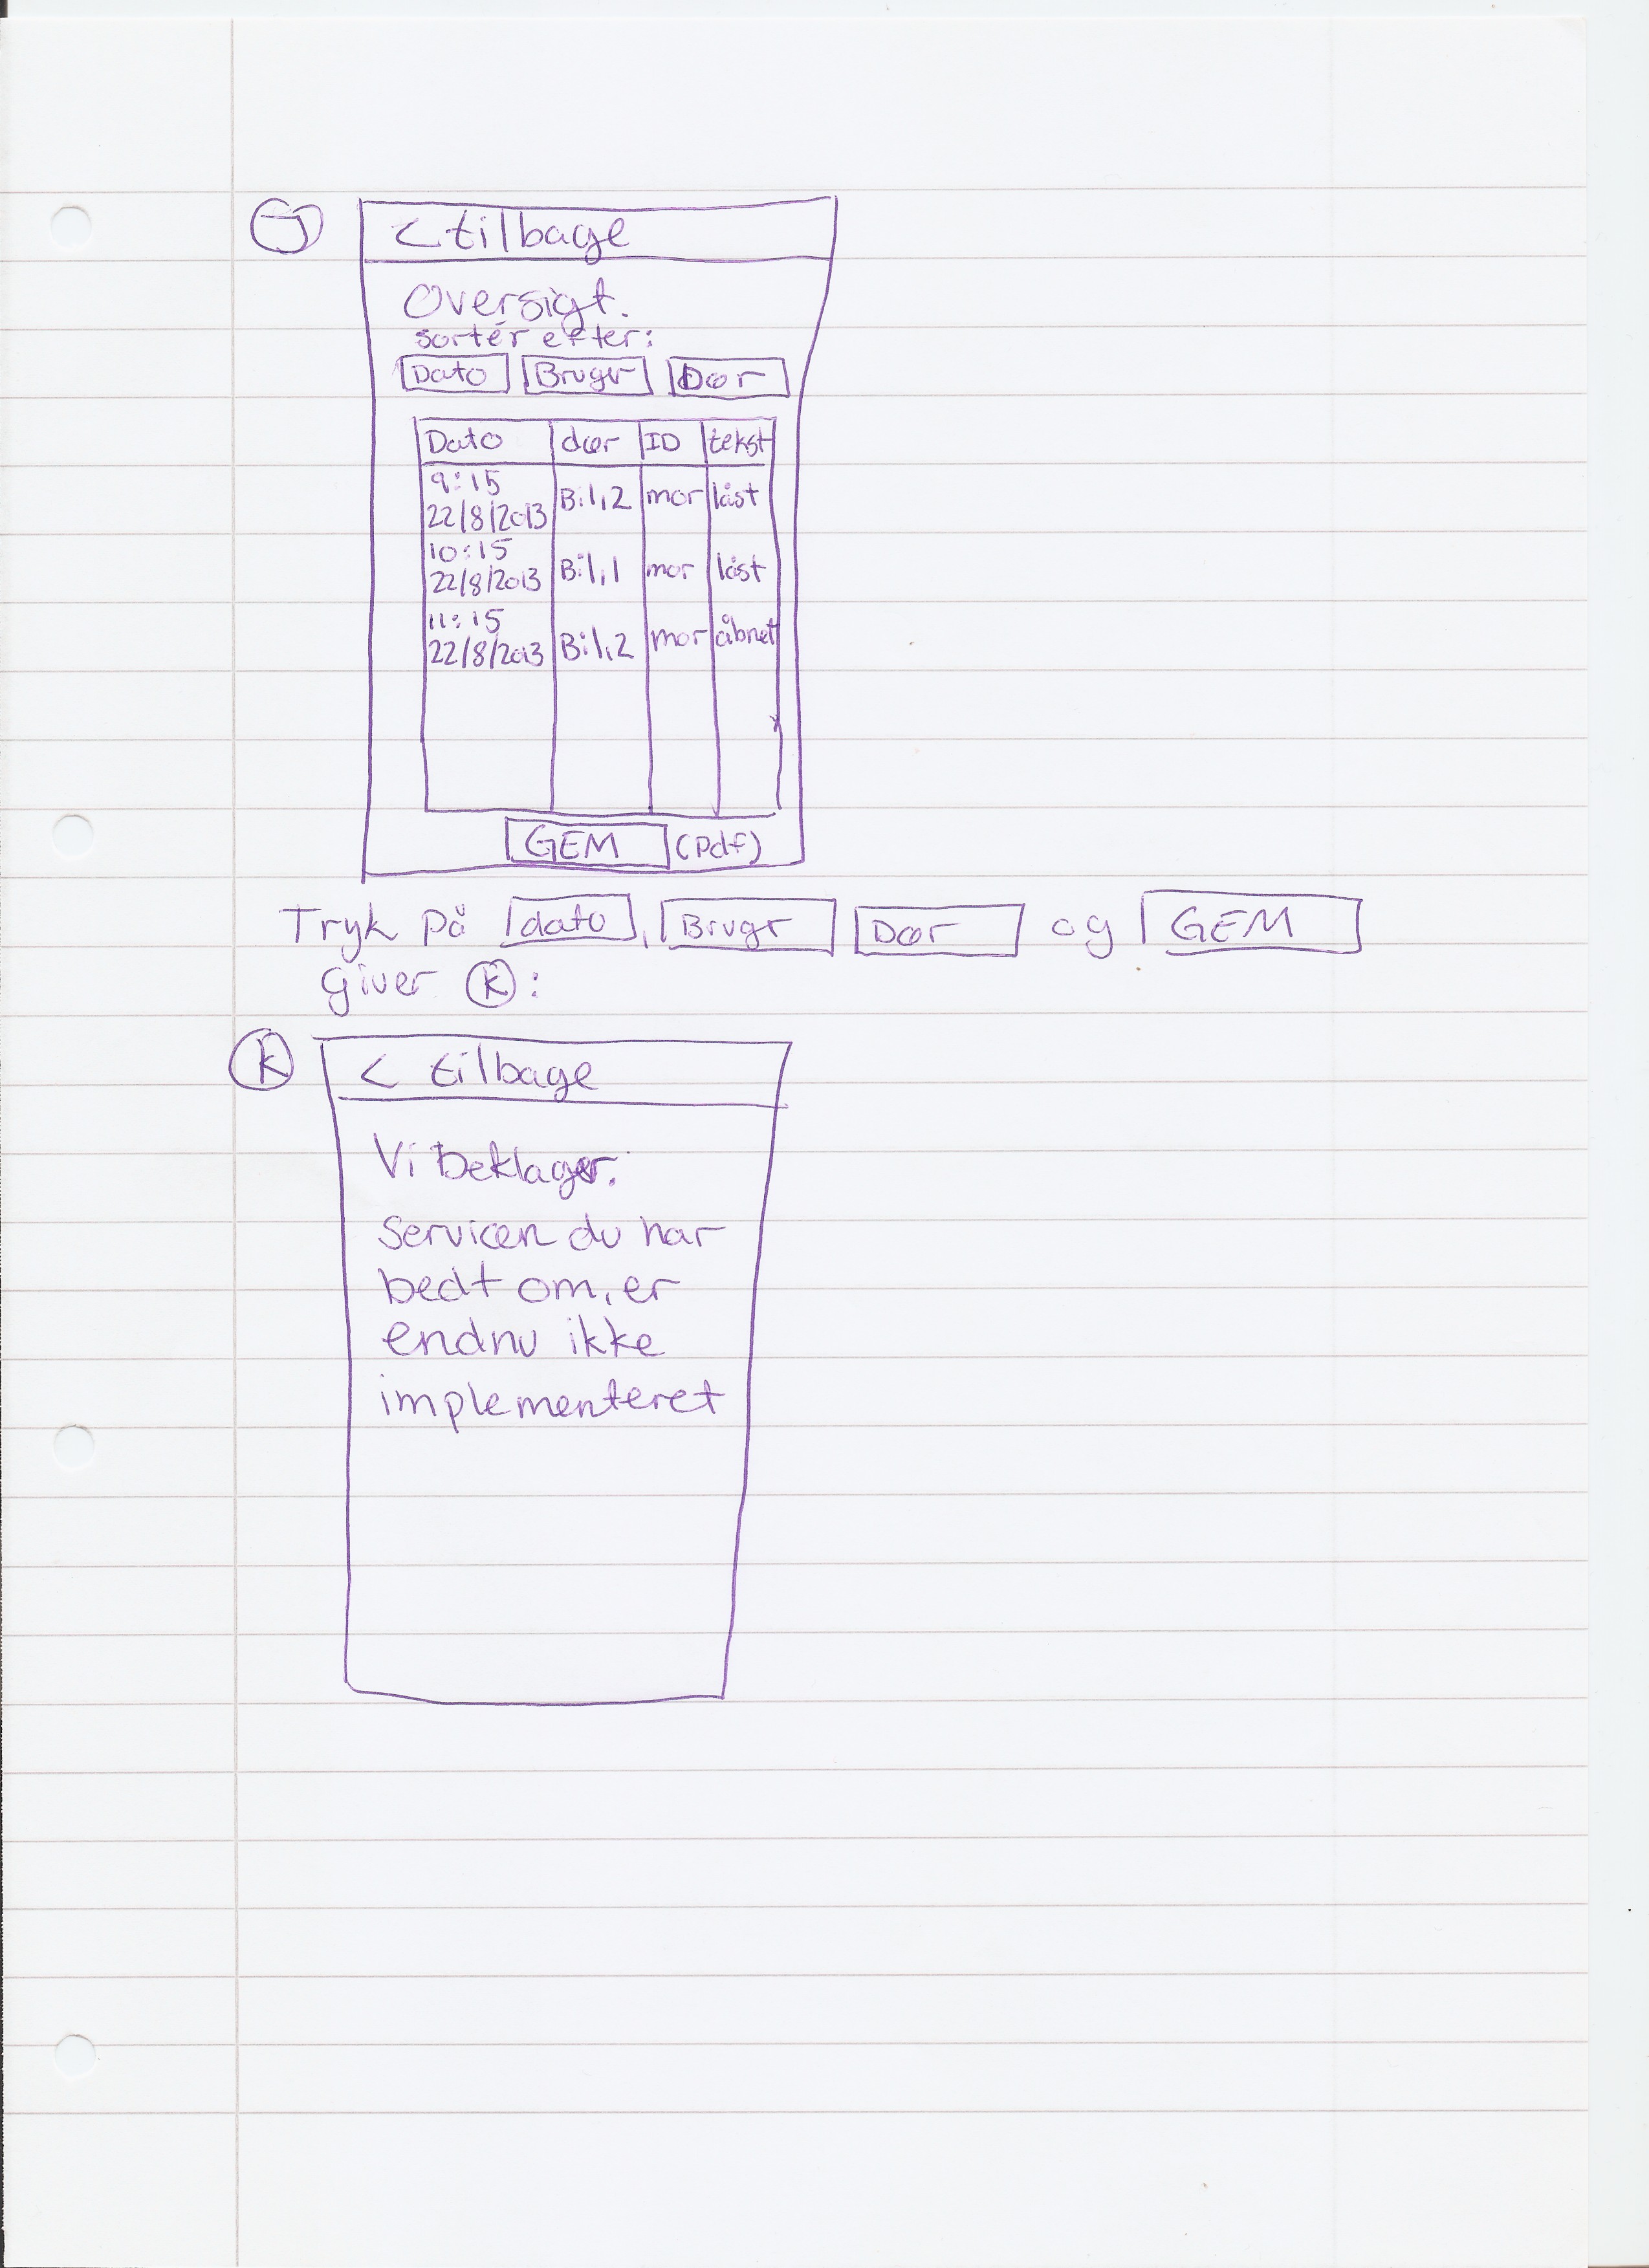 J
< tilbage
Oversigt.
sortér efter:
Dato Bruger Dør
Dato dør ID tekst
9:15
22/8/2013 Bil,2 mor låst
10:15
22/8/2013 Bil,1 mor låst
11:15
22/8/2013 Bil,2 mor åbnet
GEM (Pdf)
Tryk på dato, Brugr Dør og GEM
giver K:
K
< tilbage
Vi beklager.
Servicen du har
bedt om, er
endnu ikke
implementeret